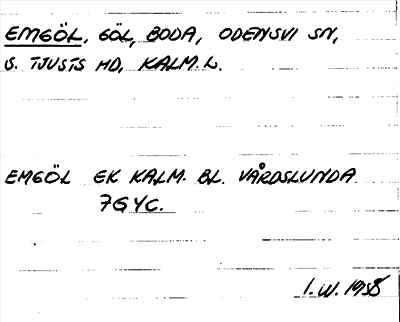 EMGÖL, GÖL, BODA, ODENSVI SN,
S. TJUSTS HD, KALM. L.
EMGÖL EK KALM. BL. VÅRDSLUNDA
7G YC.
I.W. 1958